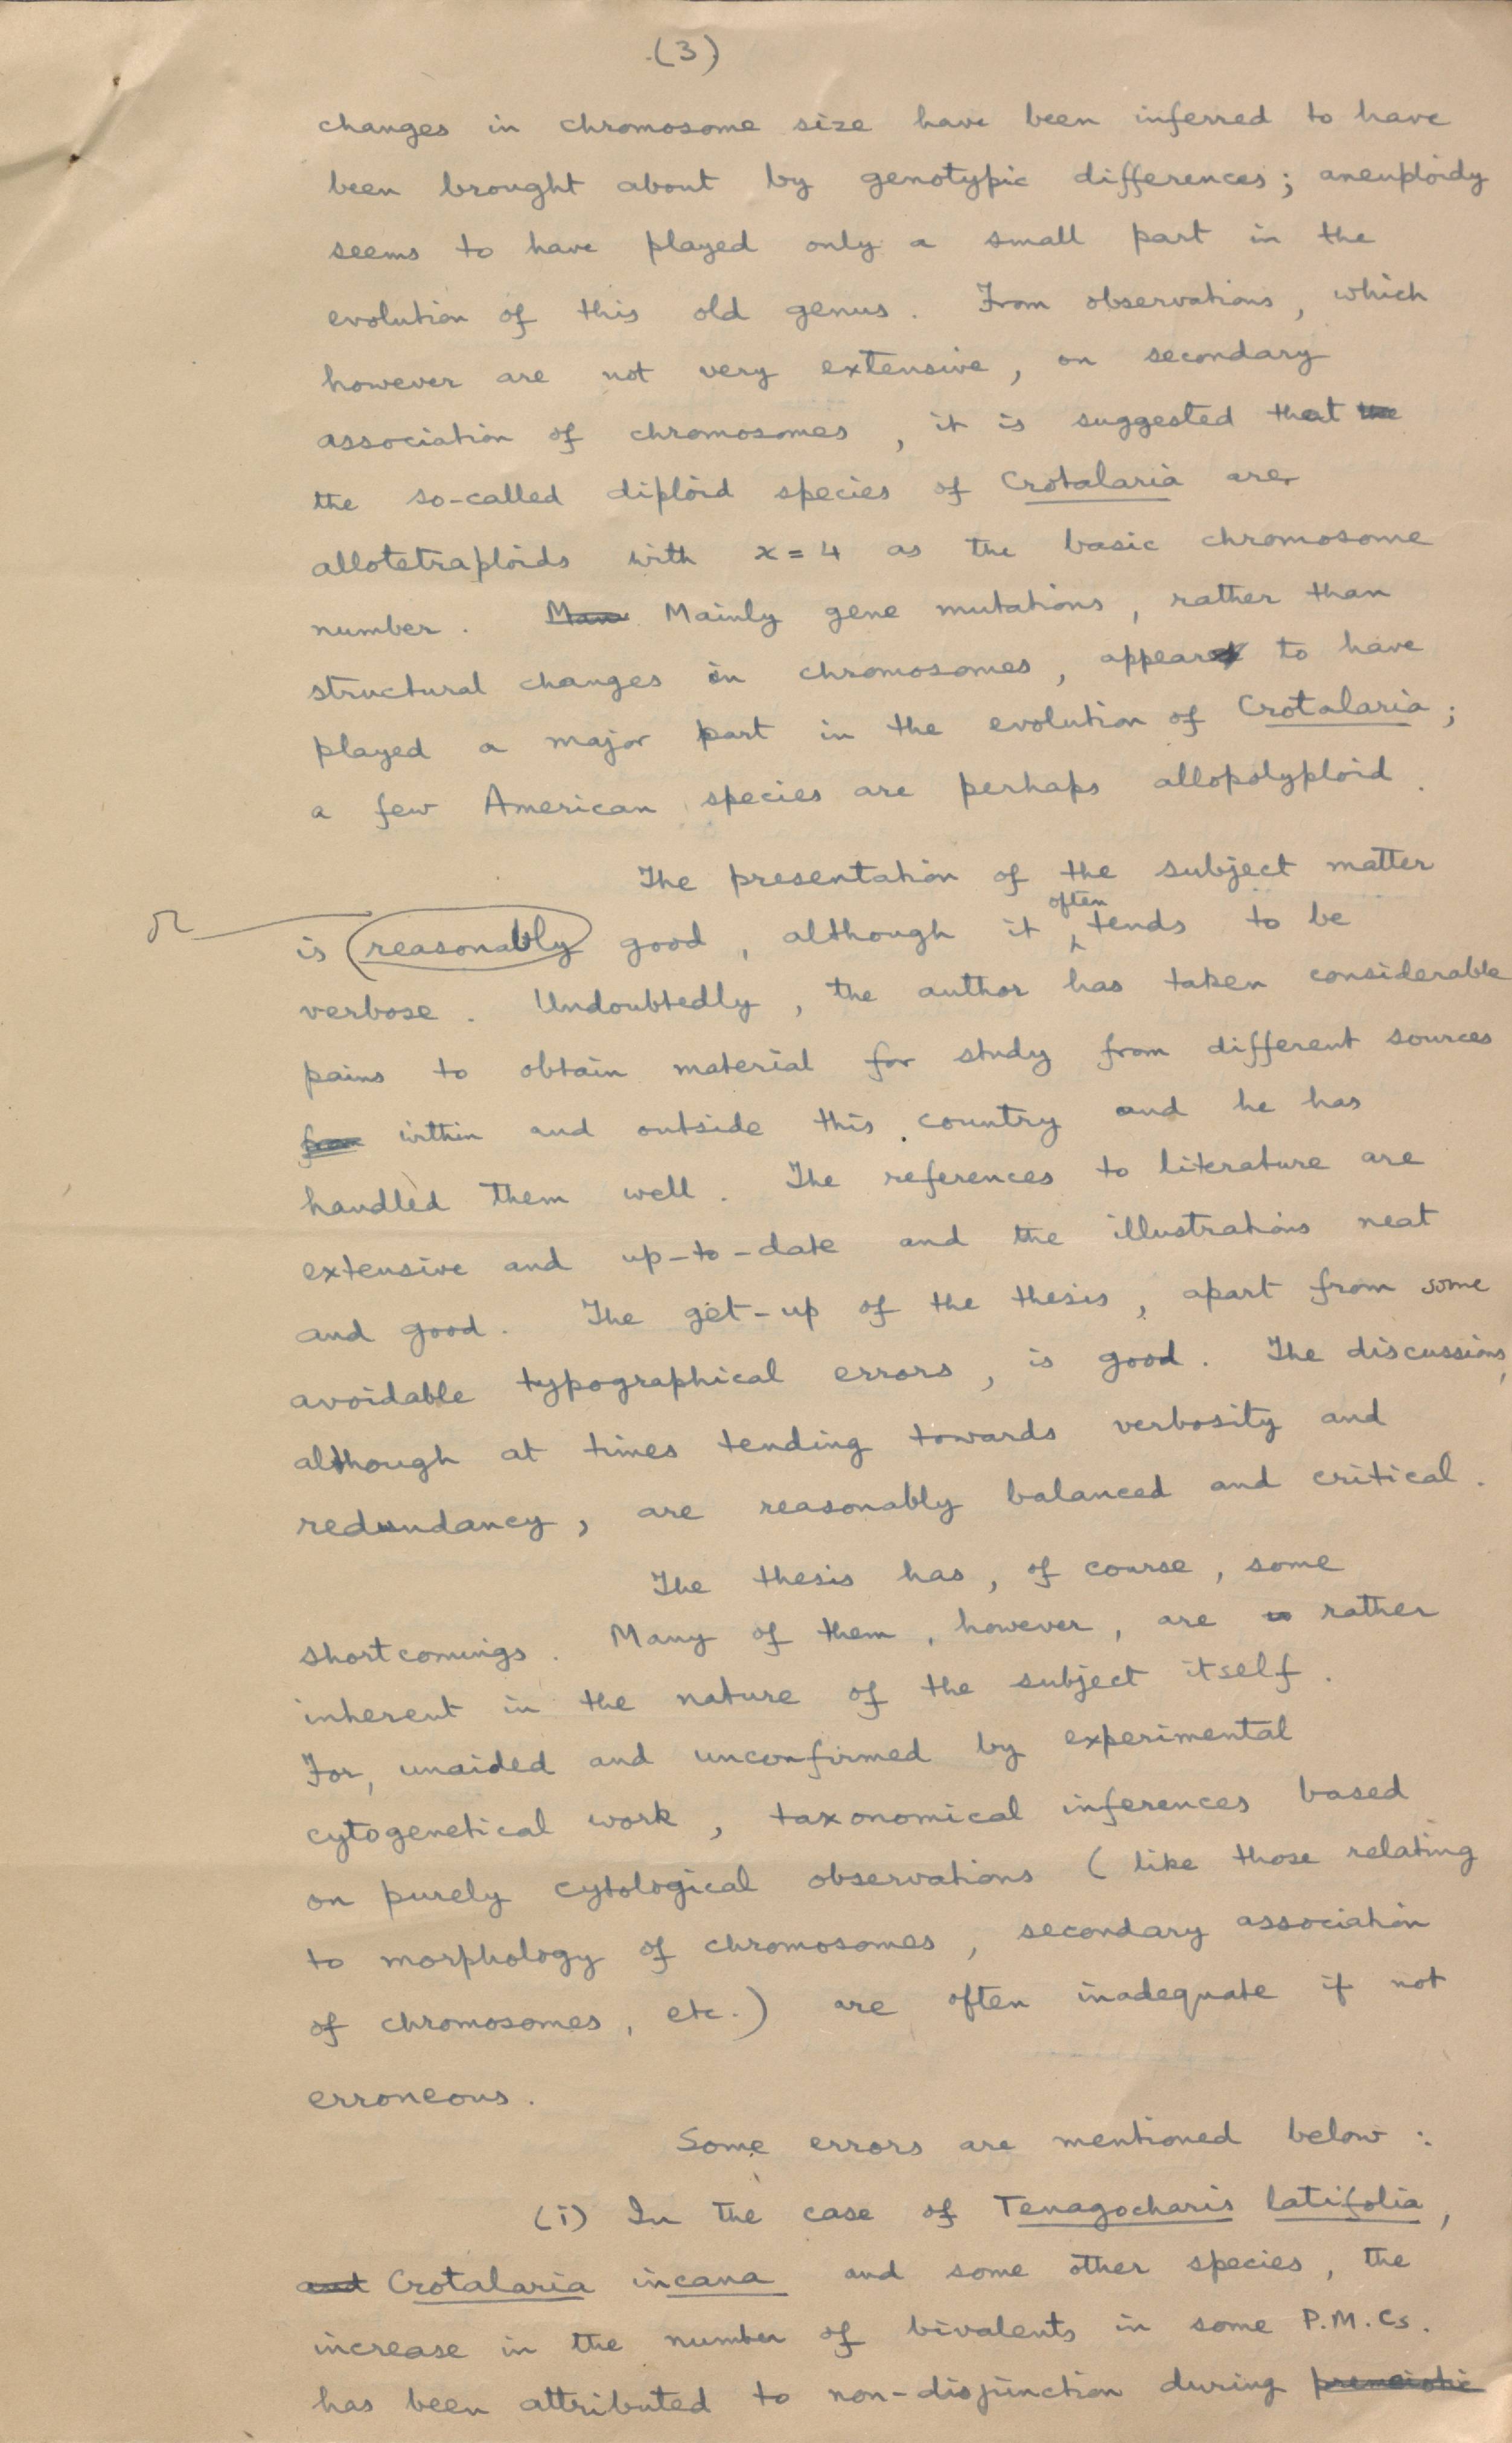 (3)
changes in chromosome size have been inferred to have
been brought about by genotypic differences; aneuploidy
seems to have played only a small part in the
evolution of this old genus. From observations, which
however are not very extensive, on secondary
association of chromosomes, it is suggested that the
the so-called diploid species of Crotalaria are
allotetraploids with x = 4 as the basic chromosome
number. Mainly gene mutations, rather than
structural changes in chromosomes, appear to have
played a major part in the evolution of Crotalaria;
a few American species are perhaps allopolyploid.
The presentation of the subject matter
often
is reasonably good, although it tends to be
verbose. Undoubtedly, the author has taken considerable
pains to obtain material for study from different sources
within and outside this country and he has
handled them well. The references to literature are
extensive and up-to-date and the illustrations neat
and good. The get-up of the thesis, apart from some
avoidable typographical errors, is good. The discussions,
although at times tending towards verbosity and
redundancy, are reasonably balanced and critical.
The thesis has, of course, some
shortcomings. Many of them, however, are rather
inherent in the nature of the subject itself.
For, unaided and unconfirmed by experimental
cytogenetical work, taxonomical inferences based
on purely cytological observations (like those relating
to morphology of chromosomes, secondary association
of chromosomes, etc.) are often inadequate if not
erroneous.
Some errors are mentioned below:
(i) In the case of Tenagocharis latifolia,
and Crotalaria incana and some other species, the
increase in the number of bivalents in some P.M.Cs.
has been attributed to non-disjunction during premeiotic